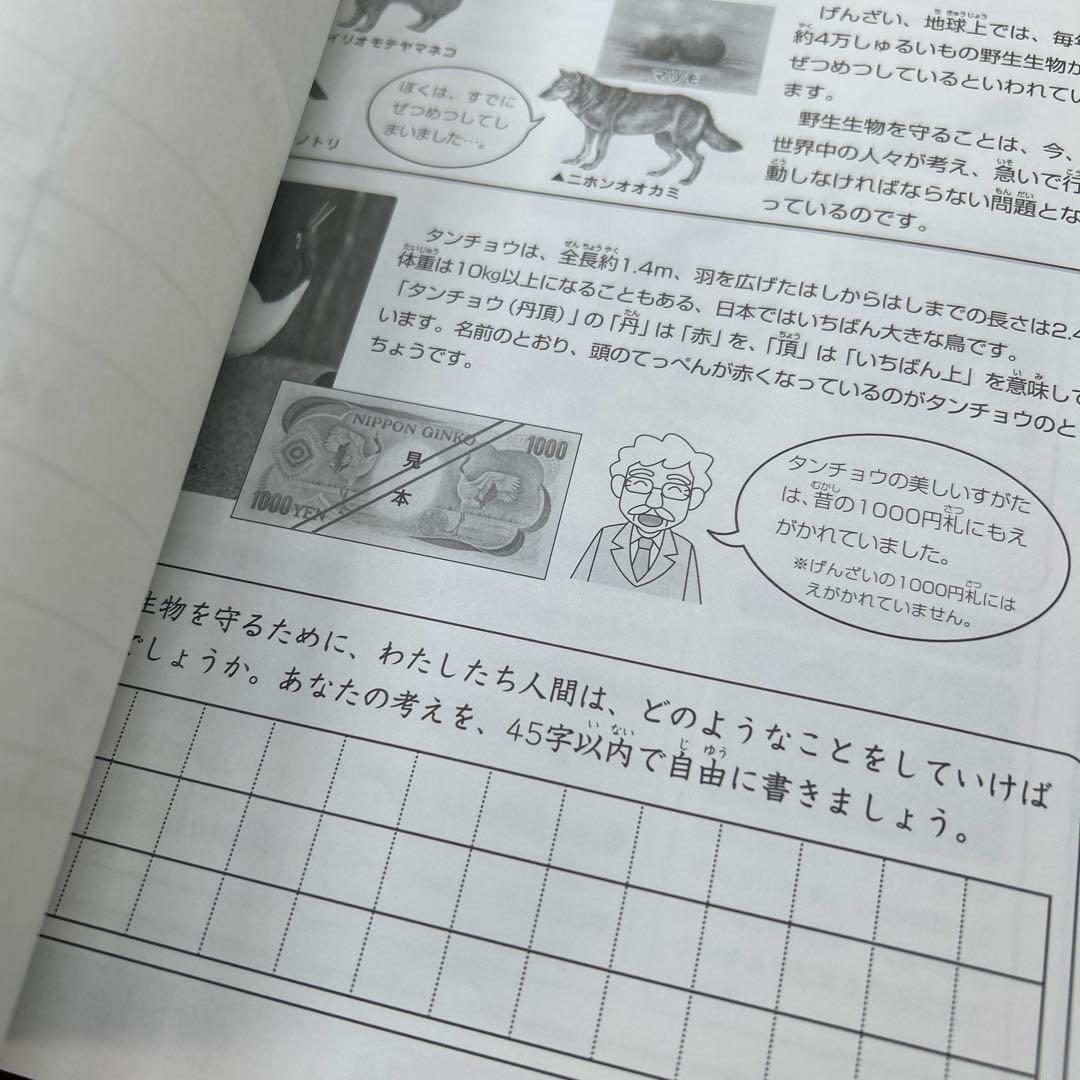 イリオモテヤマネコ
マツモ
ノトリ
ぼくは、すでに
ぜつめつしてし
まいました…。
▲ニホンオオカミ
げんざい、地球上では、毎年
約4万しゅるいもの野生生物が
ぜつめつしているといわれてい
ます。
野生生物を守ることは、今、
世界中の人々が考え、急いで行
動しなければならない問題とな
っているのです。
タンチョウは、全長約1.4m、羽を広げたはしからはしまでの長さは2.4
体重は10kg以上になることもある、日本ではいちばん大きな鳥です。
「タンチョウ(丹頂)」の「丹」は「赤」を、「頂」は「いちばん上」を意味して
います。名前のとおり、頭のてっぺんが赤くなっているのがタンチョウのと
ちょうです。
NIPPON GINKO
1000
見
本
1000 YEN
タンチョウの美しいすがた
は、昔の1000円札にもえ
がかれていました。
※げんざいの1000円札には
えがかれていません。
生物を守るために、わたしたち人間は、どのようなことをしていけば
でしょうか。あなたの考えを、45字以内で自由に書きましょう。